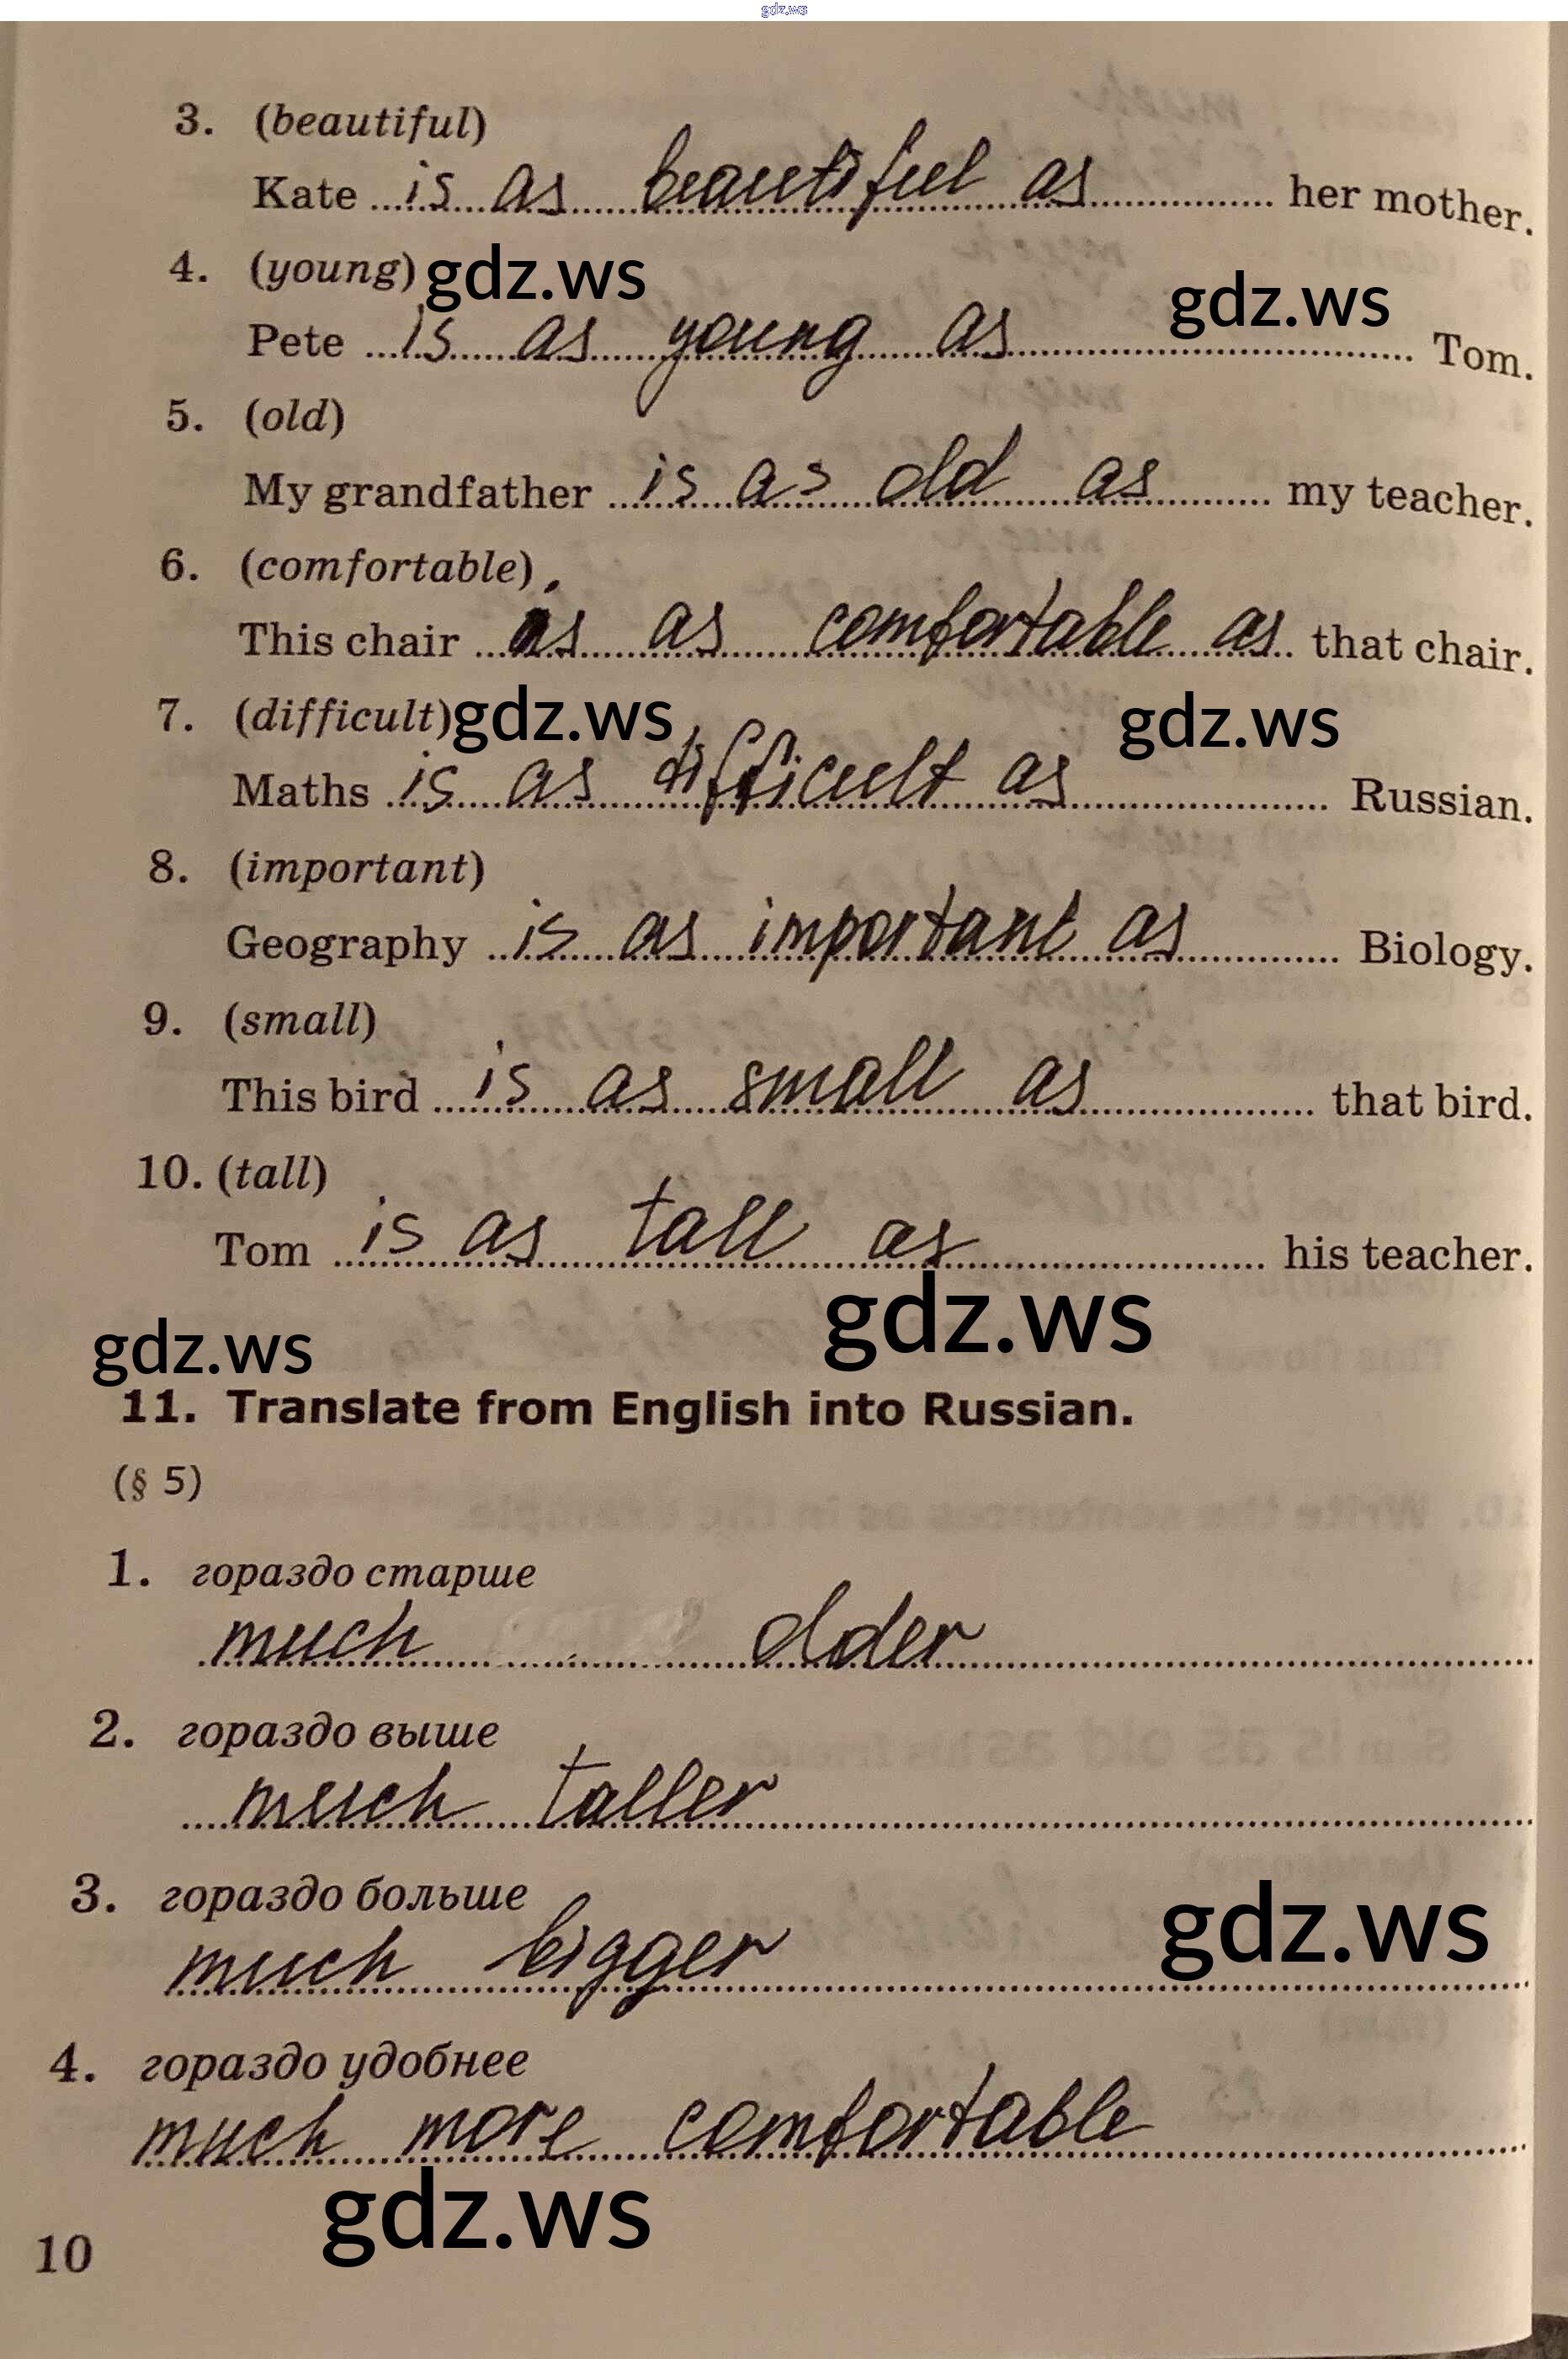 gdz.ws
3. (beautiful)
Kate is as beautiful as her mother.
4. (young) gdz.ws
gdz.ws
Pete is as young as Tom.
5. (old)
My grandfather is as old as my teacher.
6. (comfortable)
This chair is as comfortable as that chair.
7. (difficult) gdz.ws gdz.ws
Maths is as difficult as Russian.
8. (important)
Geography is as important as Biology.
9. (small)
This bird is as small as that bird.
10. (tall)
Tom is as tall as his teacher.
gdz.ws
gdz.ws
11. Translate from English into Russian.
(§ 5)
1. гораздо старше
much older
2. гораздо выше
much taller
3. гораздо больше
gdz.ws
much bigger
4. гораздо удобнее
much more comfortable
gdz.ws
10